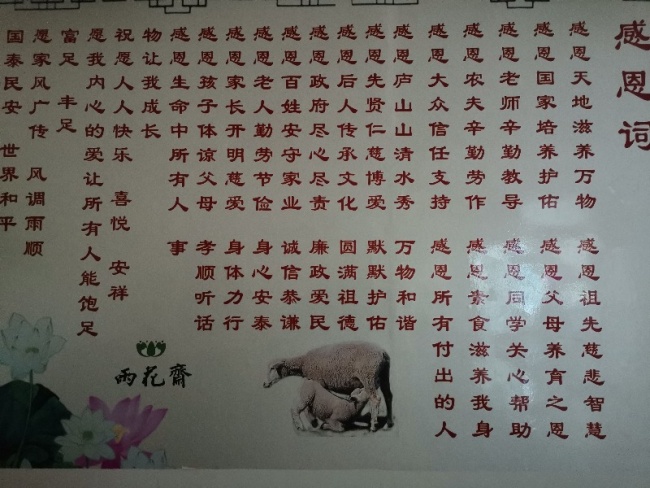 感恩词
感恩天地滋养万物 感恩祖先慈悲智慧
感恩国家培养护佑 感恩父母养育之恩
感恩老师辛勤教导 感恩同学关心帮助
感恩农夫辛勤劳作 感恩素食滋养我身
感恩大众信任支持 感恩所有付出的人
感恩庐山山清水秀 万物和谐
感恩先贤仁慈博爱 默默护佑
感恩后人传承文化 圆满祖德
感恩政府尽心尽责 廉政爱民
感恩百姓安守家业 诚信恭谦
感恩老人勤劳节俭 身心安泰
感恩家长开明慈爱 身体力行
感恩孩子体谅父母 孝顺听话
感恩生命中所有人 事
物让我成长
祝愿人人快乐 喜悦 安祥
愿我内心的爱让所有人能饱足
富足 丰足
愿家风广传 风调雨顺
国泰民安 世界和平
雨花齋